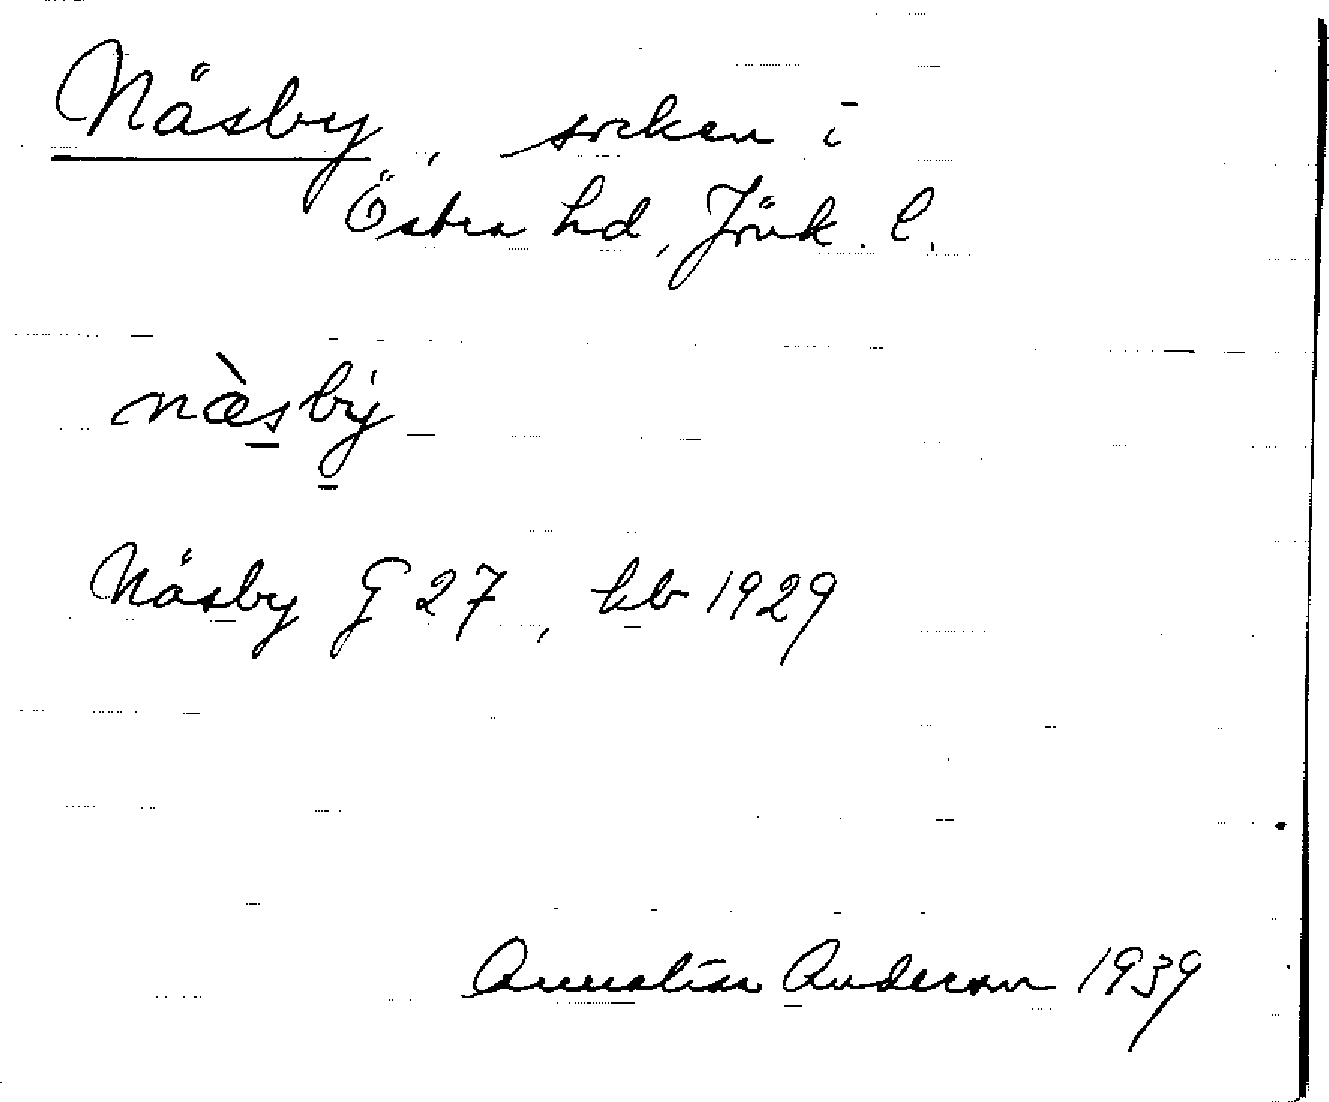 Näsby, socken i
Östra hd, Jönk. l.
næ̀sbý
Näsby G 27, kb 1929
Anderson 1939